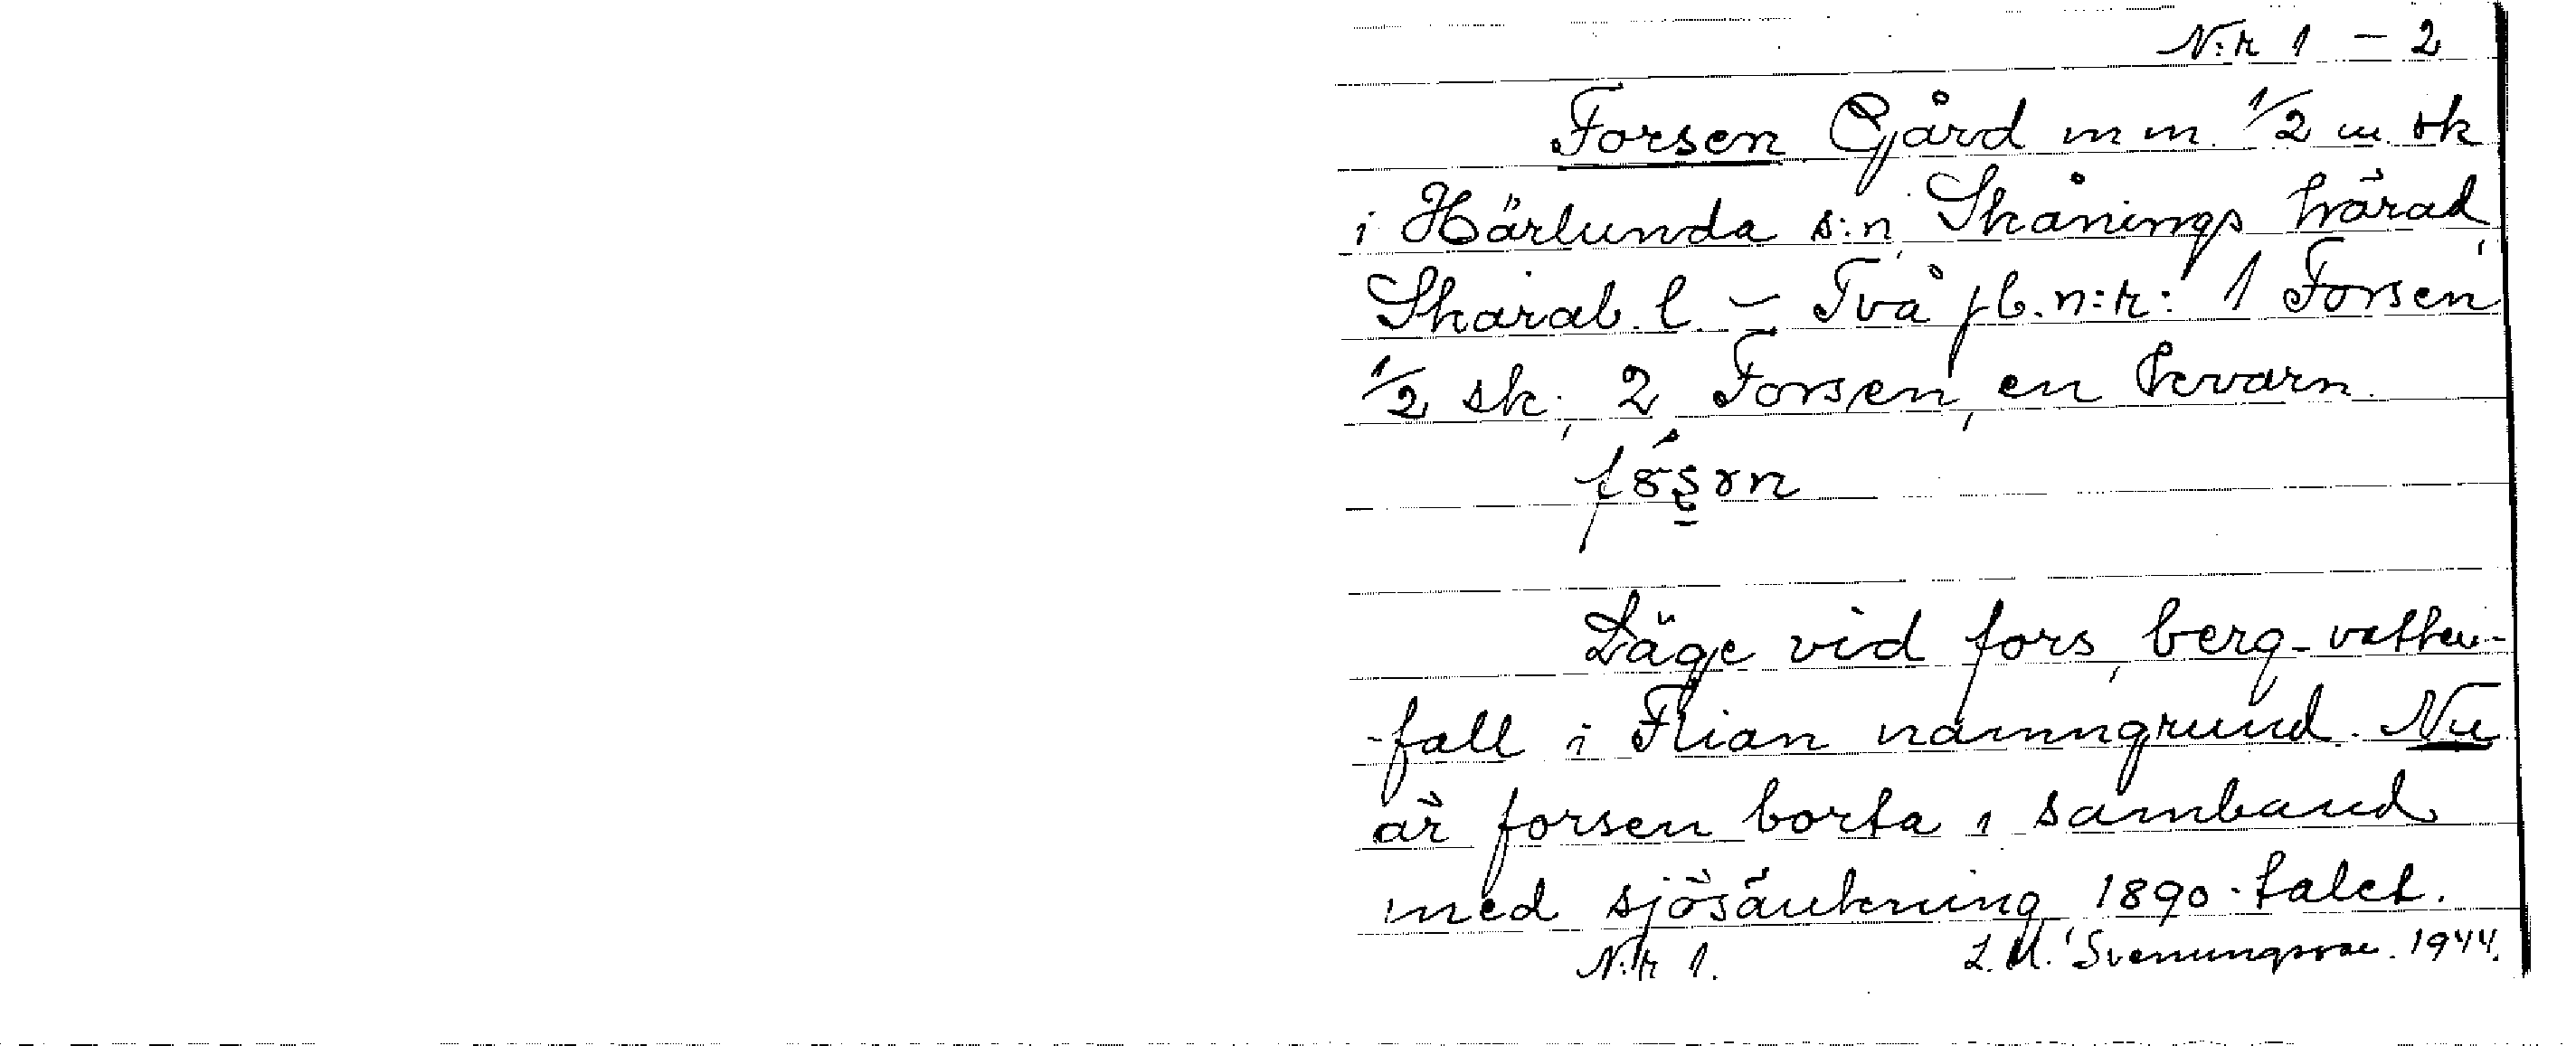 N:r 1 – 2
Forsen Gård m m. 1/2 m. sk
i Härlunda s:n, Skånings härad,
Skarab. l. – Två jb. n:r: 1 Forsen
1/2 sk., 2 Forsen, en kvarn.
Läge vid fors, berg-vatten-
-fall i Flian namngrund. Nu
är forsen borta i samband
med sjösänkning 1890-talet.
N:r 1. Svenungsson. 1944.